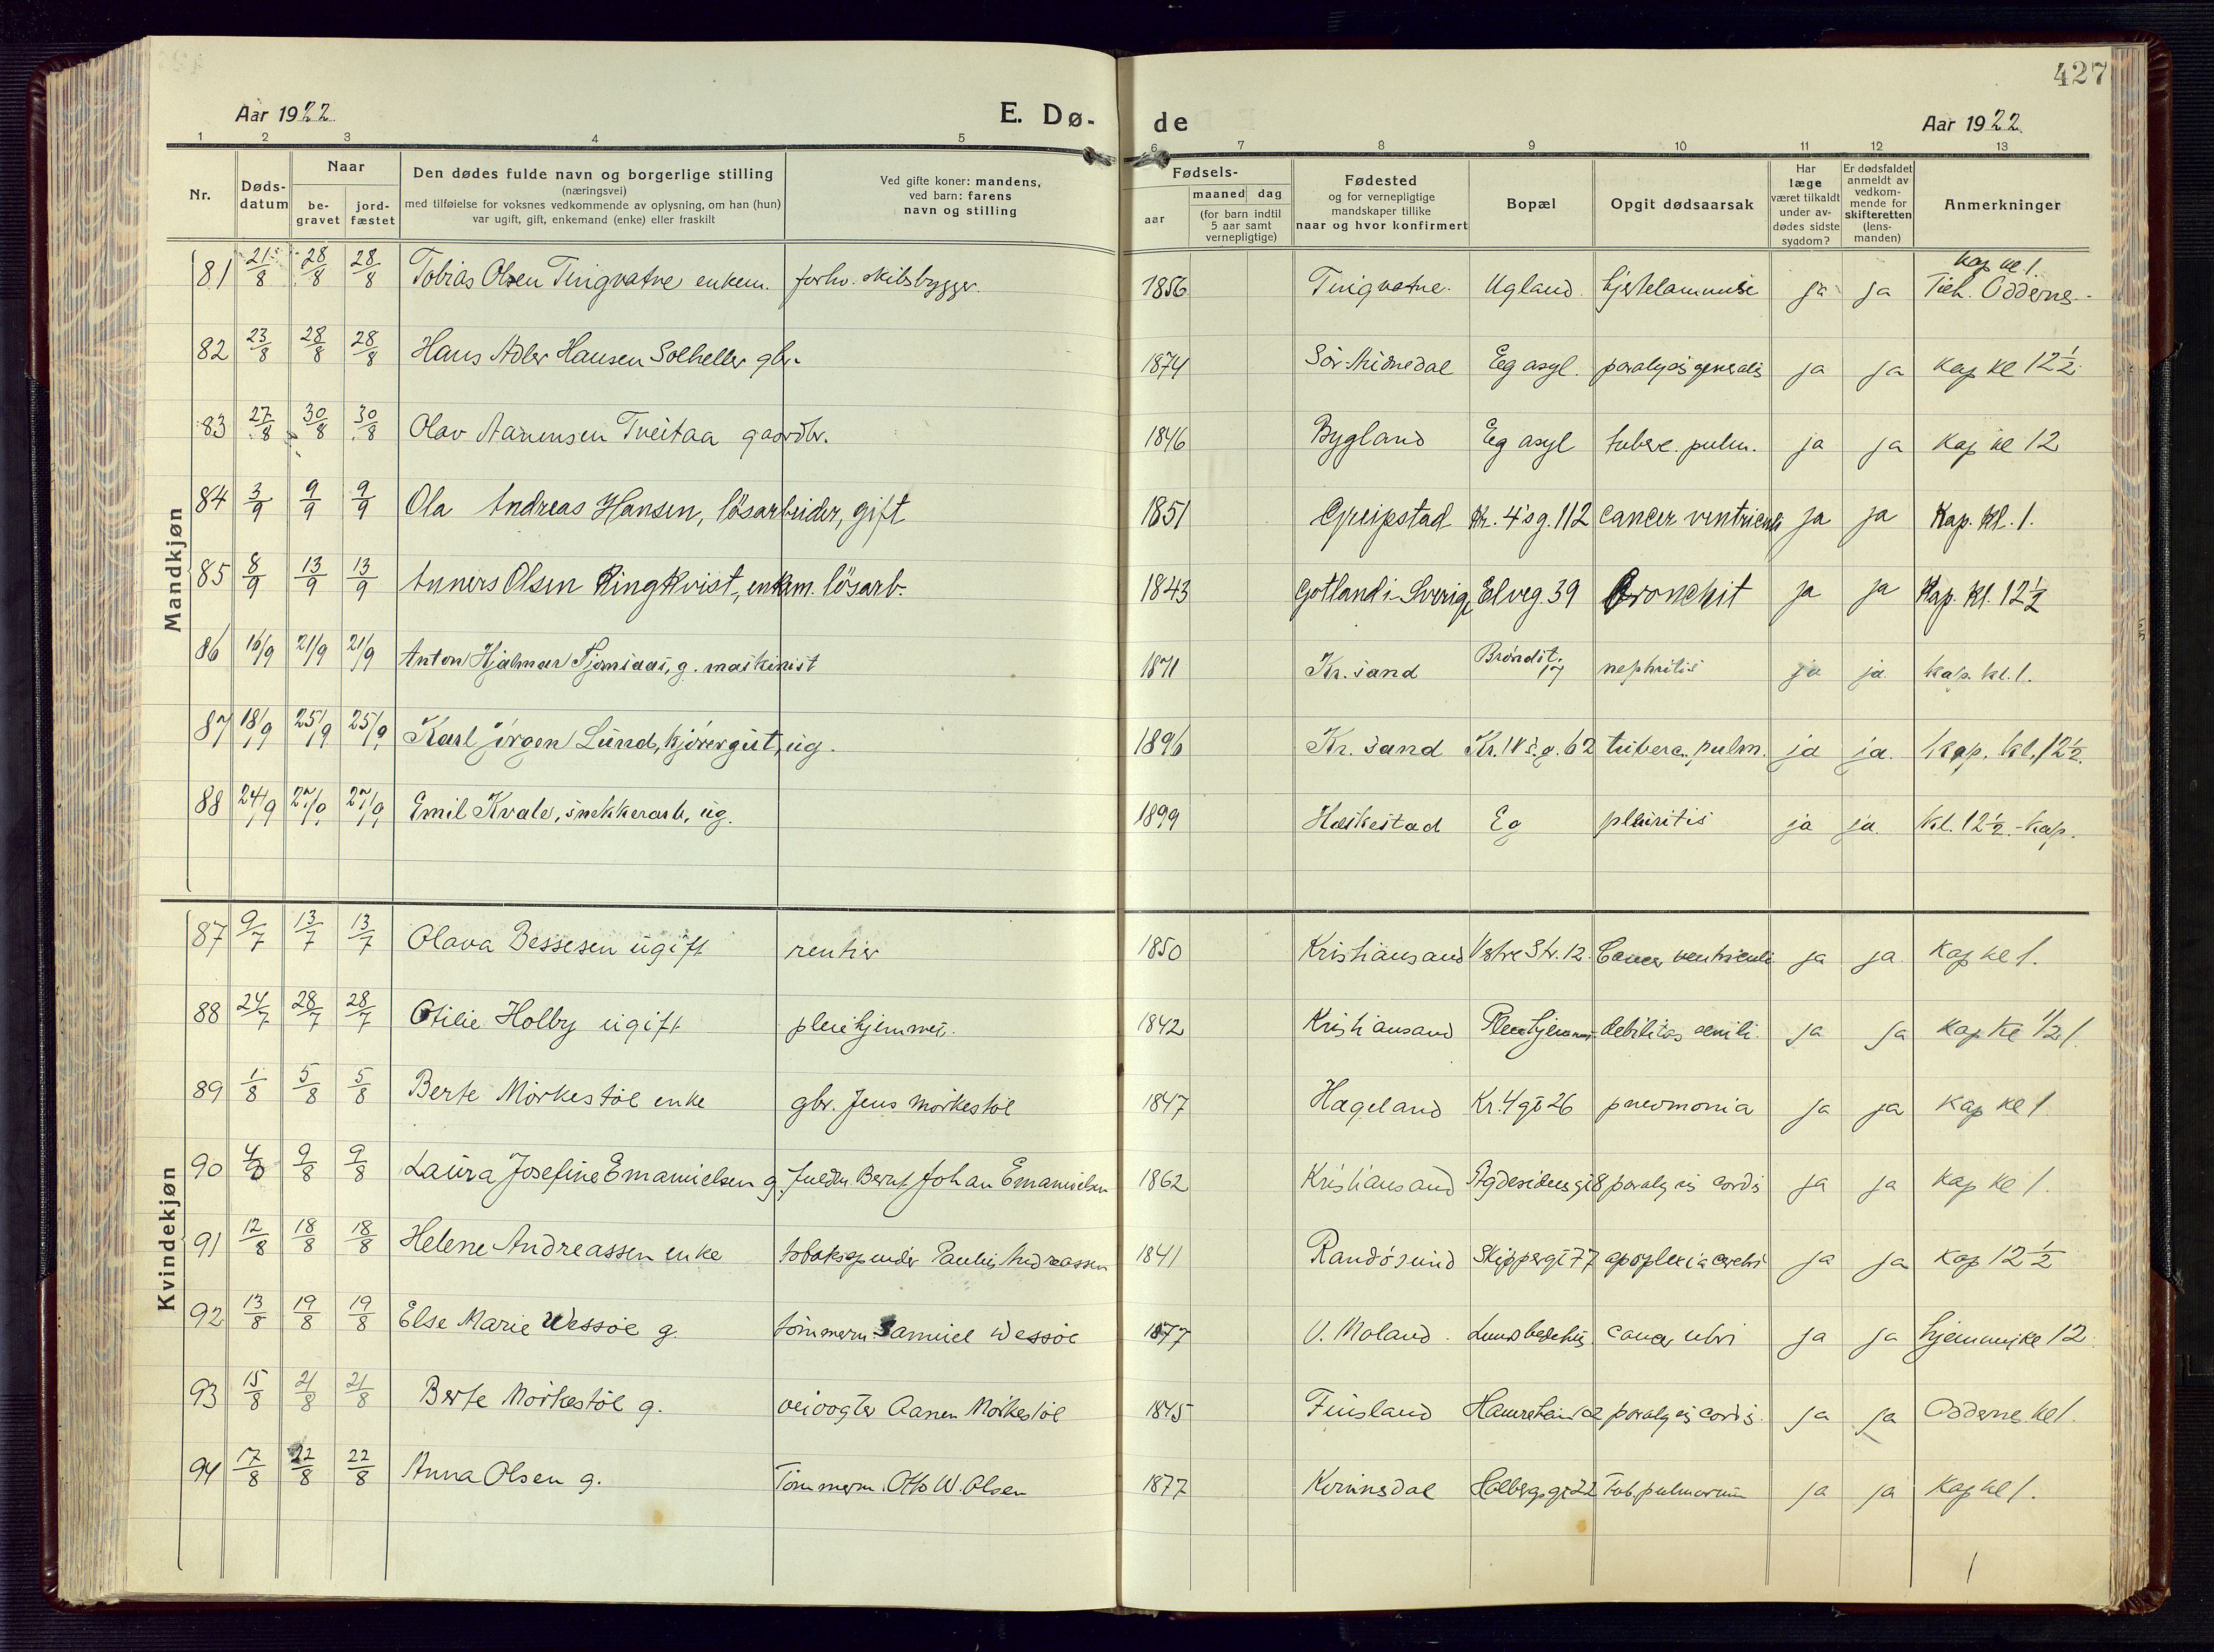 427
Aar 1922
E. Dø-
de
Aar 1922
1 2 3 4 5 6 7 8 9 10 11 12 13
Nr.
Døds-
datum
Naar
be-
gravet
jord-
fæstet
Den dødes fulde navn og borgerlige stilling
(næringsvei)
med tilføielse for voksnes vedkommende av oplysning, om han (hun)
var ugift, gift, enkemand (enke) eller fraskilt
Ved gifte koner: mandens,
ved barn: farens
navn og stilling
Fødsels-
aar
maaned dag
(for barn indtil
5 aar samt
vernepligtige)
Fødested
og for vernepligtige
mandskaper tillike
naar og hvor konfirmert
Bopæl
Opgit dødsaarsak
Har
læge
været tilkaldt
under av-
dødes sidste
sygdom?
Er dødsfaldet
anmeldt av
vedkom-
mende for
skifteretten
(lens-
manden)
Anmerkninger
Mandkjøn
81 21/8 28/8 28/8 Tobias Olsen Tingvatne enkem. forhv. skibsbygger. 1856 Tingvatne. Ugland. ja ja Kap kl 1. Odderne
82 23/8 28/8 28/8 Hans Adler Hansen Solheller gbr. 1874 Sör-Audnedal Eg asyl. paralysis generalis ja ja Kap kl 12½
83 27/8 30/8 30/8 Olav Aanensen Tveitaa gaardbr. 1846 Bygland Eg asyl tuberc. pulm. ja ja Kap kl 12
84 3/9 9/9 9/9 Ola Andreas Hansen, lösarbeider, gift 1851 Greipstad Kr. 4's g. 112 cancer ventriculi ja ja Kap. Kl. 1.
85 8/9 13/9 13/9 Anners Olsen Ringkvist, enkem. lösarb. 1843 Gotland i Sverige Elveg. 39 Bronchit ja ja Kap. Kl. 12½
86 16/9 21/9 21/9 Anton Hjalmar Tjomsaas, g. maskinist 1871 Kr. sand Brøndst. 17 nephritis ja ja Kap. kl. 1.
87 18/9 25/9 25/9 Karl Jörgen Lund, kjöregut, ug. 1896 Kr. sand Kr. IV s. g. 62 tuberc. pulm. ja ja. Kap. kl. 12½.
88 24/9 27/9 27/9 Emil Kvale, snekkerarb, ug. 1899 Heskestad Eg pleuritis ja ja. Kl. 12½. Kap.
Kvindekjøn
87 9/7 13/7 13/7 Olava Bessesen ugift rentier 1850 Kristiansand Vstre Str. 12. Cancer ventriculi ja ja Kap kl 1.
88 24/7 28/7 28/7 Otilie Holby ugift pleiehjemmet. 1842 Kristiansand Pleiehjemmet debilitas senili. ja ja Kap Kl ½1.
89 1/8 5/8 5/8 Berte Mörkestöl enke gbr. Jens Mörkestöl 1847 Hægeland Kr. 4 gt 26 pneumonia ja ja Kap kl 1
90 4/8 9/8 9/8 Laura Josefine Emanuelsen g. fuldm. Bernt Johan Emanuelsen 1862 Kristiansand paralysis cordis ja ja Kap kl 1.
91 12/8 18/8 18/8 Helene Andreassen enke tobakspinder Paulus Andreassen 1841 Randösund Skippergt 77 apoplexia cerebri ja ja Kap 12½
92 13/8 19/8 19/8 Else Marie Wessöe g. tömmerm. Samuel Wessöe 1877 V. Moland. cancer ubri ja ja hjemme kl 12
93 15/8 21/8 21/8 Berte Mörkestöl g. veivogter Aanen Mörkestöl 1845 Finsland paralysis cordis. ja ja Oddernes kl 1.
94 17/8 22/8 22/8 Anna Olsen g. Tömmerm. Otto W. Olsen 1877 Kvinesdal Holbergsgt 22 Tub. pulmonum ja ja Kap kl 1.